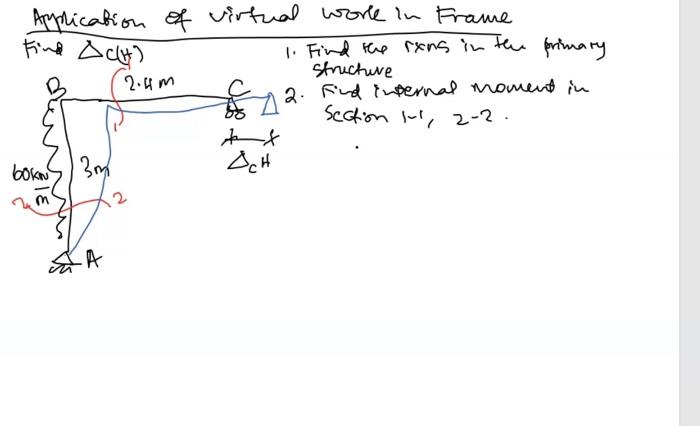 Application of virtual work in Frame
Find Δc(H)
1. Find the rxns in the primary
structure
2. Find internal moment in
section 1-1, 2-2.
B
2.4m
C
1
1
3m
60kN/m
ΔcH
2
2
A